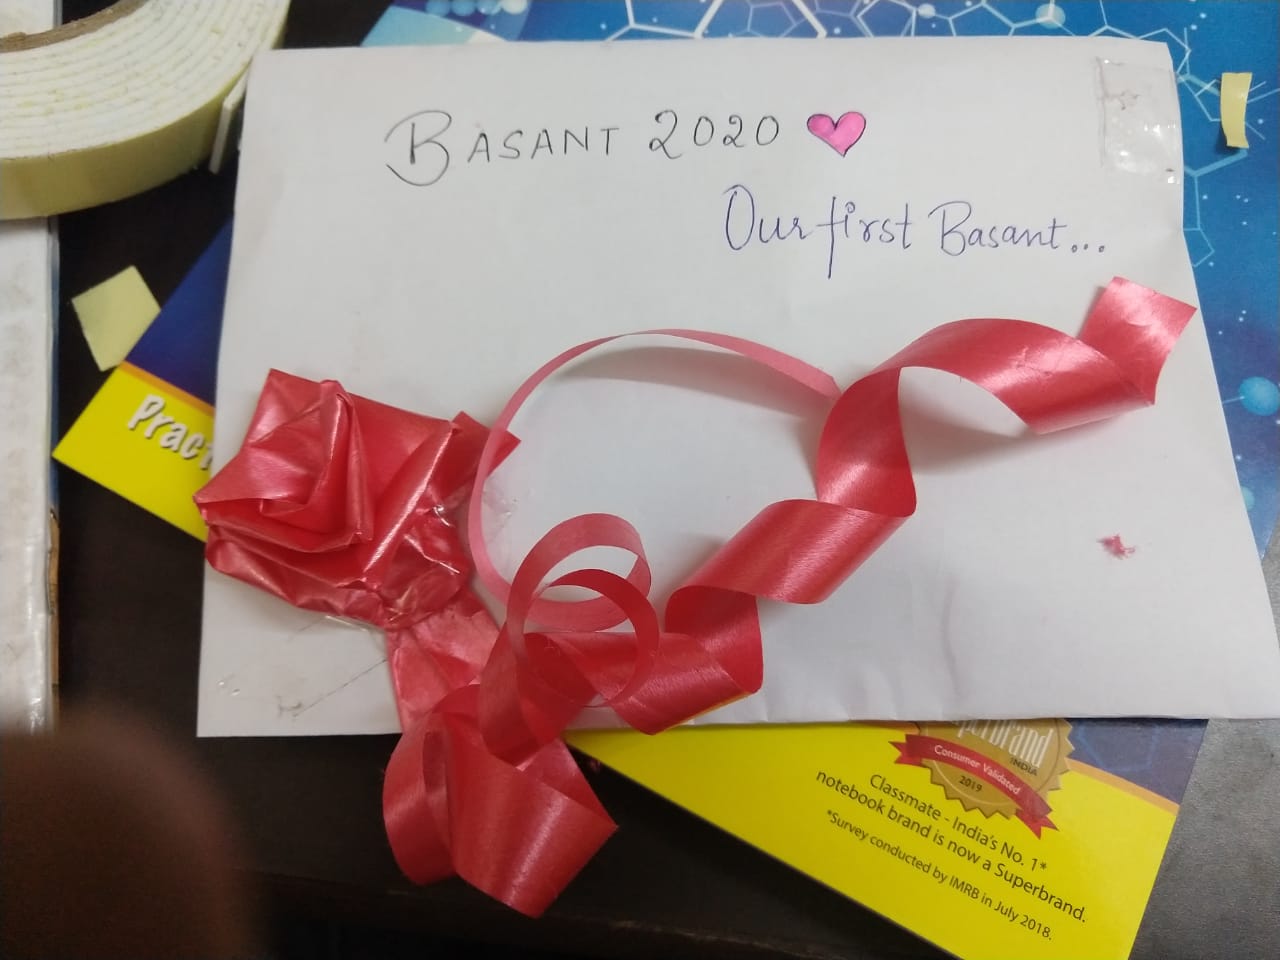 BASANT 2020
Our first Basant...
Pract
Superbrand
INDIA
Consumer Validated
2019
Classmate - India's No. 1*
notebook brand is now a Superbrand.
*Survey conducted by IMRB in July 2018.